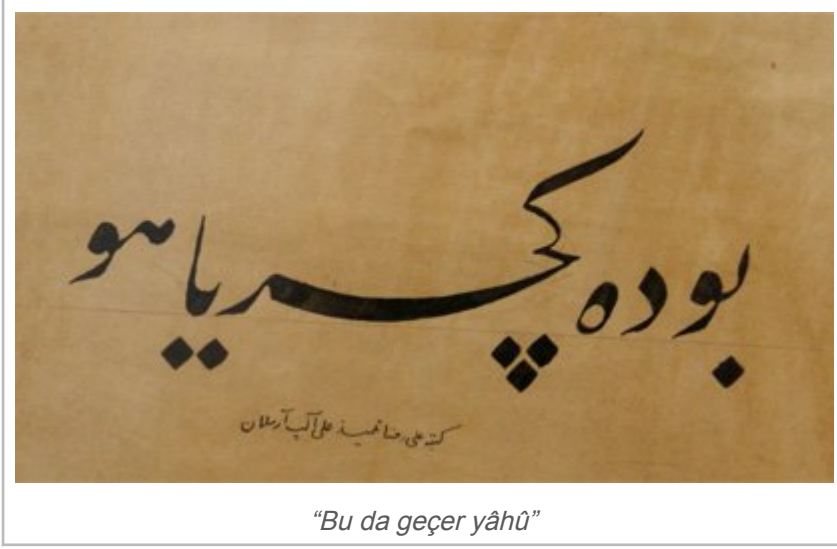 بو ده کچر یا هو
کتبه علی رضا تلمیذ علی آلپ آرسلان
“Bu da geçer yâhû”